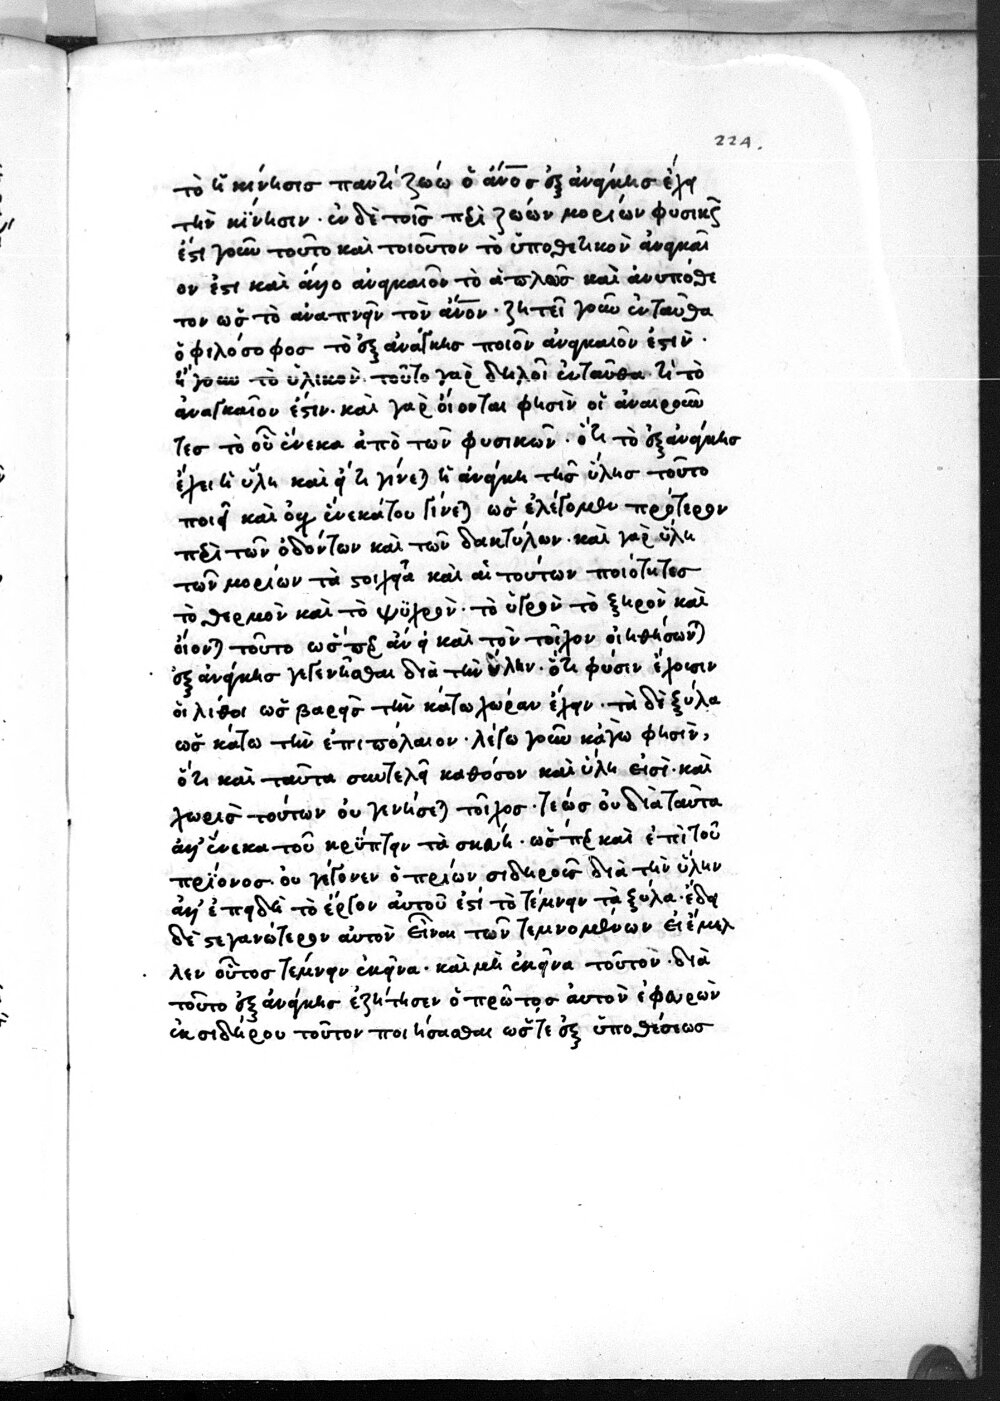 224.
τὸ ἡ κίνησις παντὶ ζώω ὁ ἄνος ἐξ ἀνάγκης ἔχει
τὴν κίνησιν · ἐν δὲ τοῖς περὶ ζώων μορίων φυσικοῖς
ἐστι γοῦν τοῦτο καὶ τοιοῦτον τὸ ὑποθετικὸν ἀναγκαῖ
ον ἐστι καὶ ἄλλο ἀναγκαῖον τὸ ἁπλῶς καὶ ἀνυπόθε
τον ὡς τὸ ἀναπνεῖν τὸν ἄνον · ζητεῖ γοῦν ἐνταῦθα
ὁ φιλόσοφος τὸ ἐξ ἀνάγκης ποῖον ἀναγκαῖον ἐστὶν ·
ἤγουν τὸ ὑλικὸν · τοῦτο γὰρ δηλοῖ ἐνταῦθα τί τὸ
ἀναγκαῖον ἐστιν · καὶ γὰρ οἴονται φησὶν οἱ ἀναιροῦν
τες τὸ οὗ ἕνεκα ἀπὸ τῶν φυσικῶν · ὅτι τὸ ἐξ ἀνάγκης
ἔχει ἡ ὕλη καὶ εἴ τι γίνεται ἡ ἀνάγκη τῆς ὕλης τοῦτο
ποιεῖ καὶ οὐχ ἕνεκά του γίνεται ὡς ἐλέγομεν πρότερον
περὶ τῶν ὀδόντων καὶ τῶν δακτύλων · καὶ γὰρ ὕλη
τῶν μορίων τὰ στοιχεῖα καὶ αἱ τούτων ποιότητες
τὸ θερμὸν καὶ τὸ ψϋχρὸν · τὸ ὑγρὸν τὸ ξηρὸν καὶ
οἴονται τοῦτο ὥσπερ ἂν εἰ καὶ τὸν τοῖχον οἰηθήσωνται
ἐξ ἀνάγκης γεγενῆσθαι διὰ τὴν ὕλην · ὅτι φύσιν ἔχουσιν
οἱ λίθοι ὡς βαρεῖς τὴν κάτω χώραν ἔχειν · τὰ δὲ ξύλα
ὡς κάτω τὴν ἐπιπόλαιον · λέγω γοῦν κἀγὼ φησὶν,
ὅτι καὶ ταῦτα συντελεῖ καθόσον καὶ ὕλη εἰσὶ · καὶ
χωρὶς τούτων οὐ γενήσεται τοῖχος · τέως οὐ διὰ ταῦτα
ἀλλ' ἕνεκα τοῦ κρύπτειν τὰ σκεύη · ὥσπερ καὶ ἐπὶ τοῦ
πρίονος · οὐ γέγονεν ὁ πρίων σιδηροῦς διὰ τὴν ὕλην
ἀλλ' ἐπειδὴ τὸ ἔργον αὐτοῦ ἐστὶ τὸ τέμνειν τὰ ξύλα · ἔδει
δὲ στεγανώτερον αὐτὸν εἶναι τῶν τεμνομένων εἰ ἔμελ
λεν οὗτος τέμνειν ἐκεῖνα · καὶ μὴ ἐκεῖνα τοῦτον · διὰ
τοῦτο ἐξ ἀνάγκης ἐζήτησεν ὁ πρῶτος αὐτὸν ἐφευρὼν
ἐκ σιδήρου τοῦτον ποιήσασθαι ὥστε ἐξ ὑποθέσεως